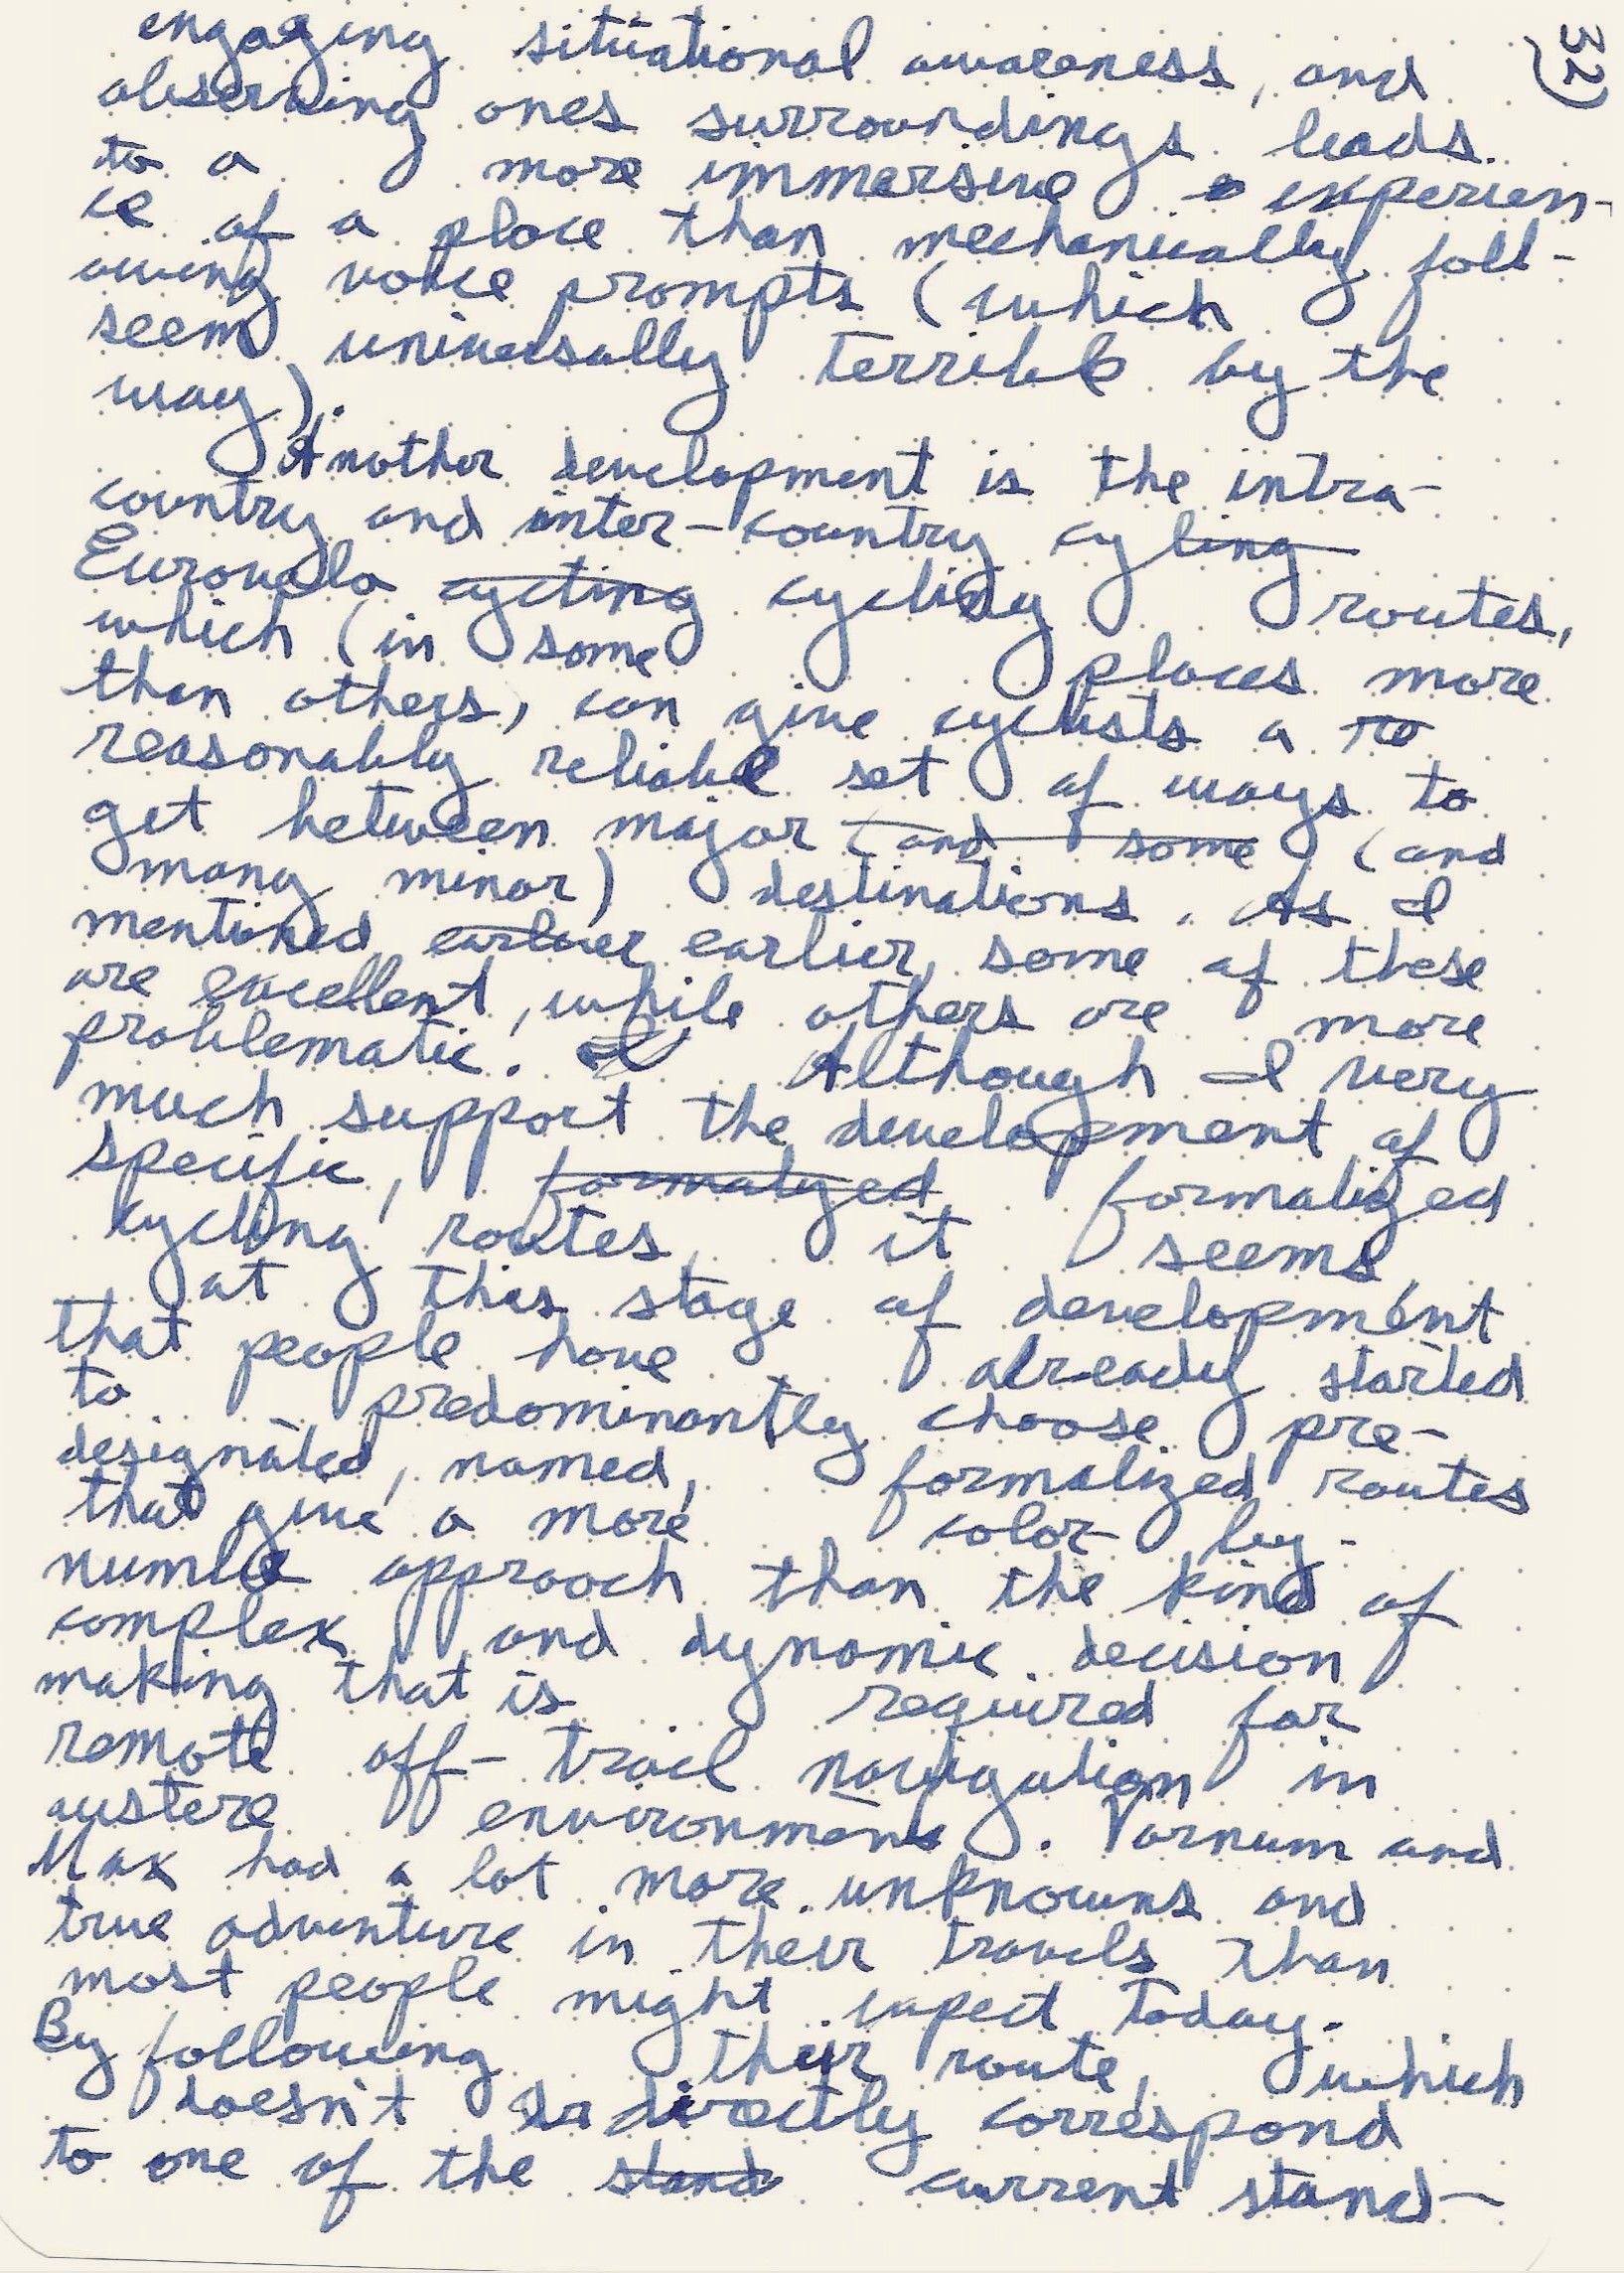 32)
engaging situational awareness, and
observing ones surroundings leads
to a more immersive experien-
ce of a place than mechanically foll-
owing voice prompts (which
seem universally terrible by the
way).
Another development is the intra-
country and inter-country cyling
Eurovelo cycting cycling routes,
which (in some places more
than others, can give cyclists a re
reasonably reliable set of ways to
get between major (and some (and
many minor) destinations. As I
mentioned earluer earlier, some of these
are excellent, while others are more
problematic. I Although I very
much support the development of
specific, formalyzed formalized
cycling routes, it seems
at this stage of development
that people have already started
to predominantly choose pre-
designated, named, formalized routes
that give a more color by
number approach than the kind of
complex and dynamic decision
making that is required for
remote off-trail navigation in
austere environments. Varnum and
Max had a lot more unknowns and
true adventure in their travels than
most people might expect today.
By following their route, which
doesn't directly correspond
to one of the stand current stand-